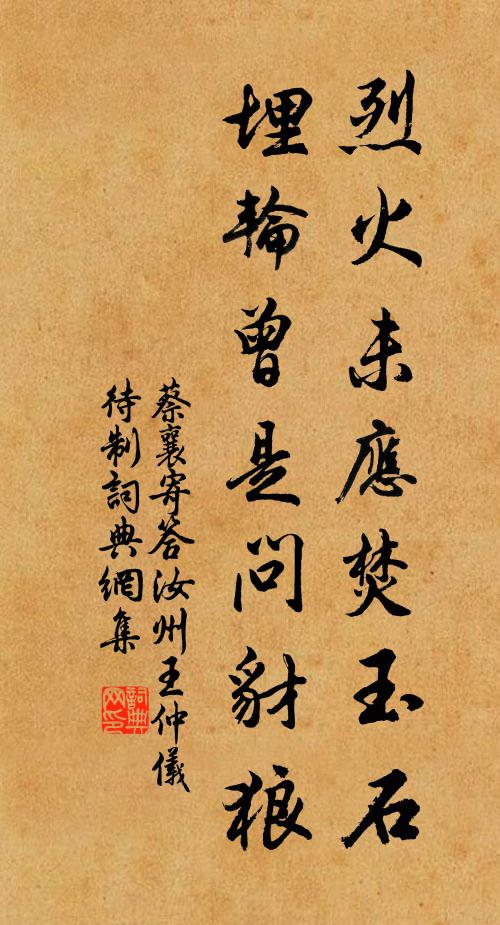 烈火未應焚玉石
埋輪曾是問豺狼
蔡襄寄答汝州王仲儀
待制詞典網集
詞典网印